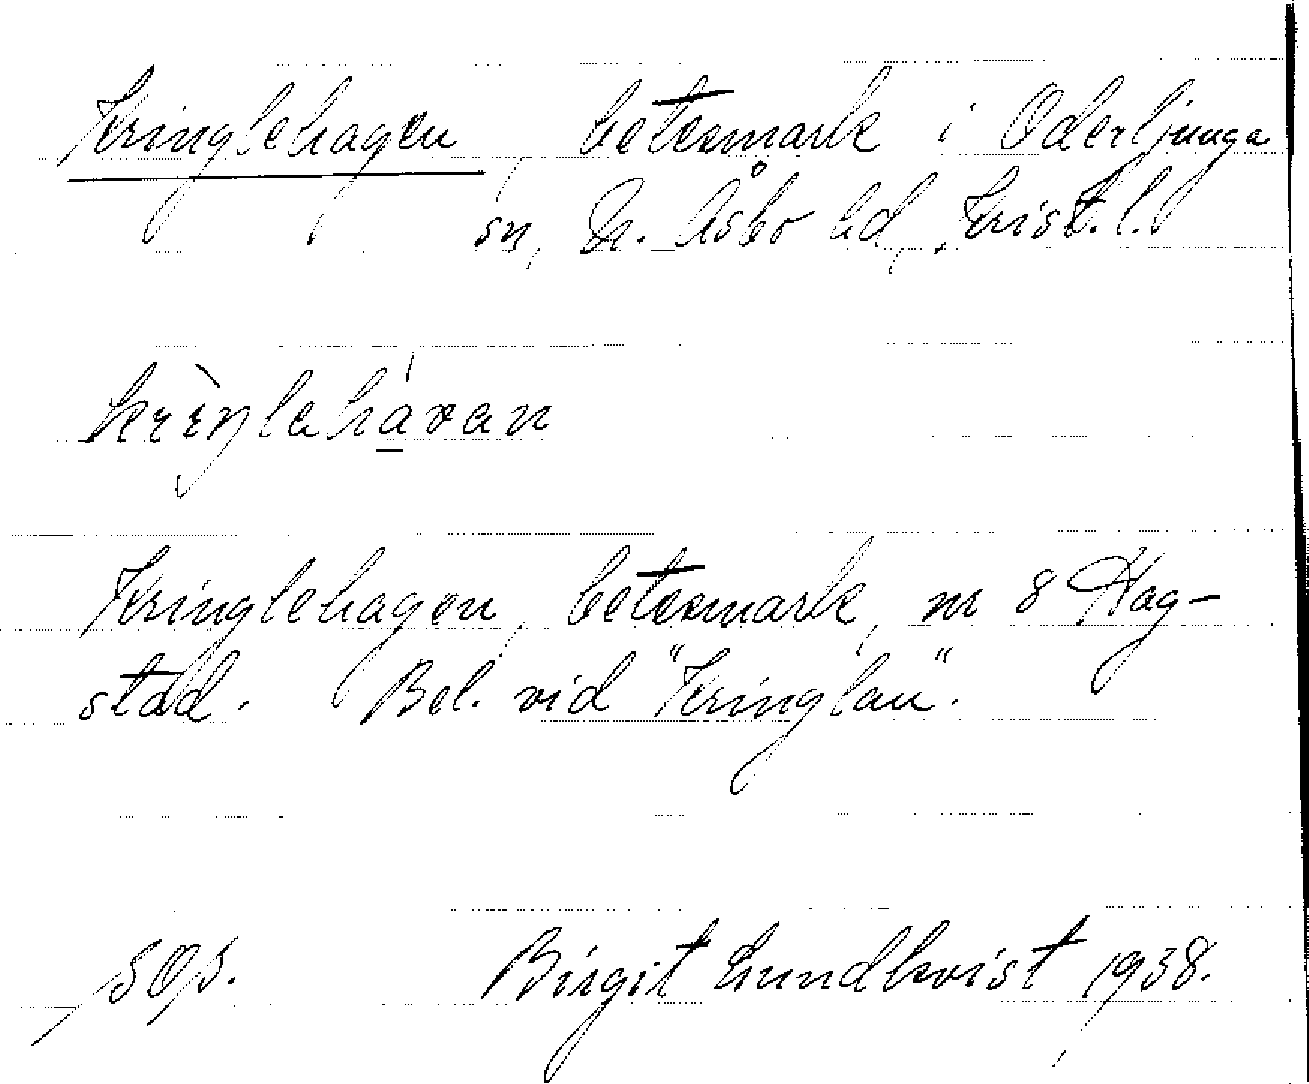 Kringlehagen betesmark i Oderljunga
sn, N. Åsbo hd, Krist. l.
Kringlehagen, betesmark, nr 8 Hag-
stad. Bel. vid "Kringlan".
Birgit Lundkvist 1938.